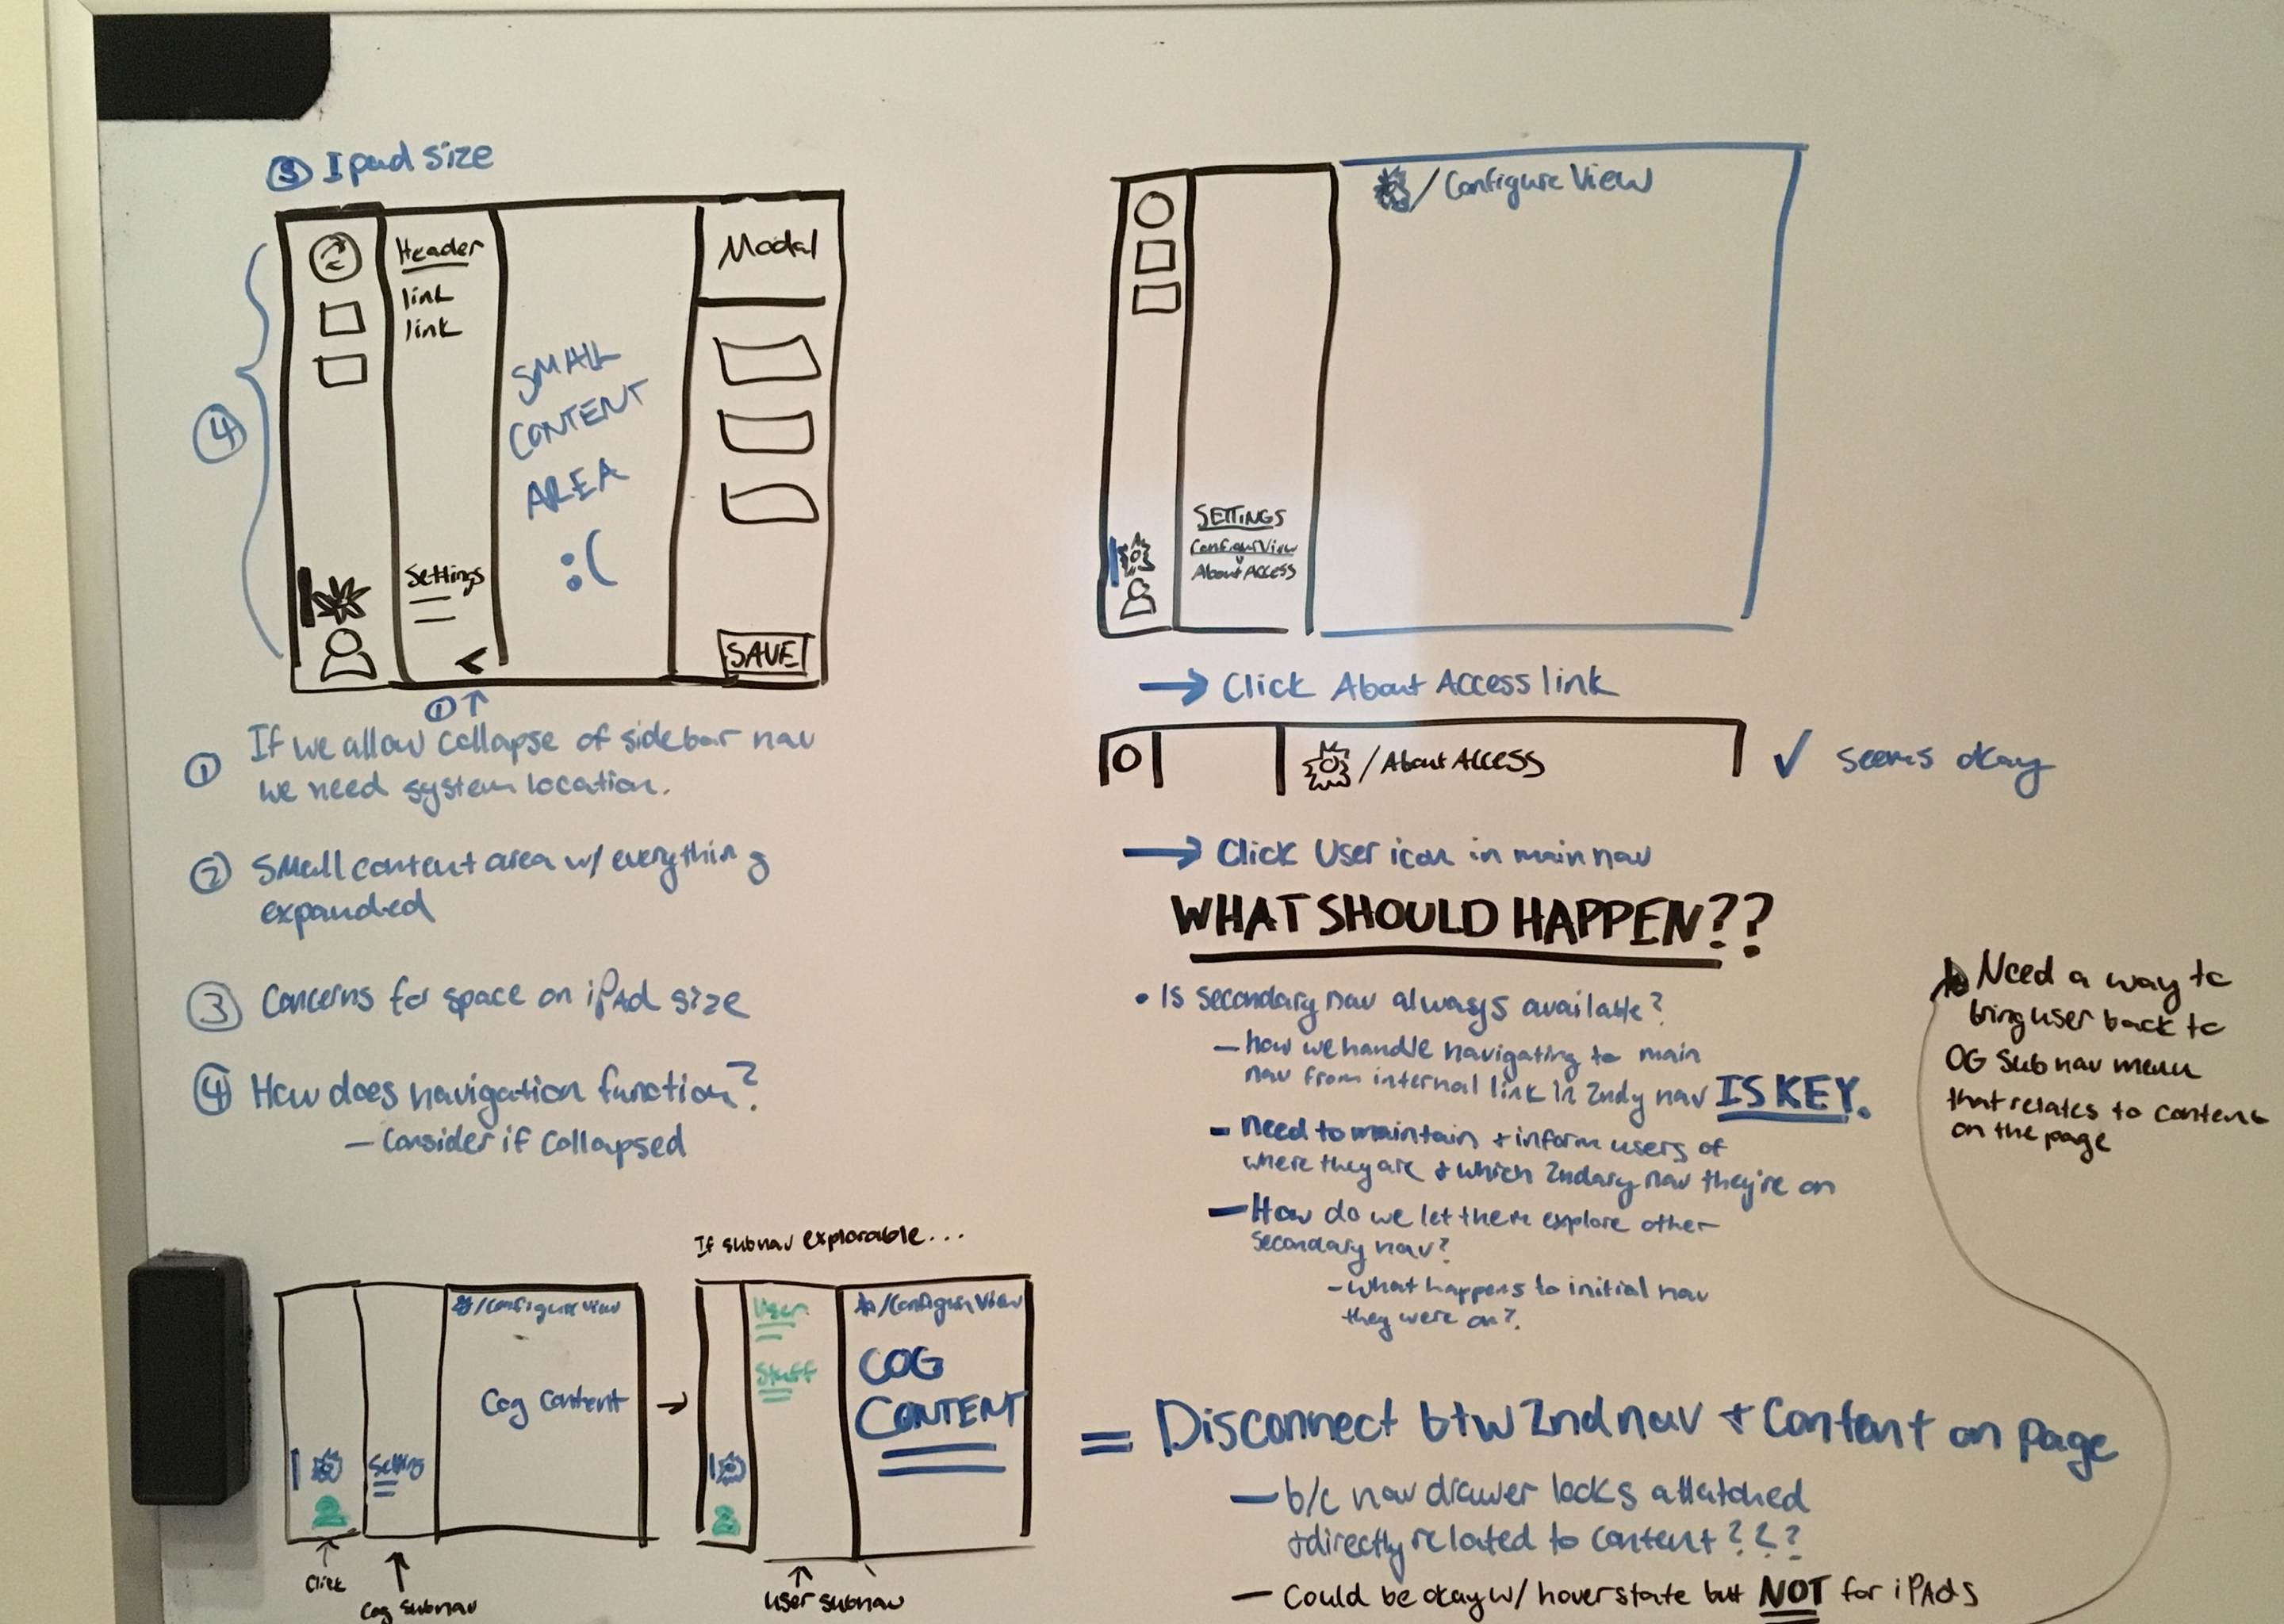 ③ Ipad size
Header
link
link
Settings
SMALL
CONTENT
AREA
:(
Modal
SAVE
④
① ↑
① If we allow collapse of sidebar nav
we need system location.
② Small content area w/ everything
expanded
③ Concerns for space on iPAd size
④ How does navigation function?
– Consider if collapsed
/Configure View
SETTINGS
Configure View
About Access
→ Click About Access link
/About Access
✓ seems okay
→ Click User icon in main nav
WHAT SHOULD HAPPEN??
• Is secondary nav always available?
– how we handle navigating to main
nav from internal link in 2ndy nav IS KEY.
– need to maintain + inform users of
where they are + which 2ndary nav they're on
– How do we let them explore other
secondary nav?
– what happens to initial nav
they were on?
Need a way to
bring user back to
OG Subnav menu
that relates to content
on the page
/configure view
Cog Content
Setting
↑
Click
↑
Cog Subnav
→
If subnav explorable...
User
Stuff
/Configure View
COG
CONTENT
↑
User subnav
= Disconnect btw 2nd nav + Content on page
– b/c nav drawer looks attatched
+directly related to content???
– Could be okay w/ hover state but NOT for iPAds